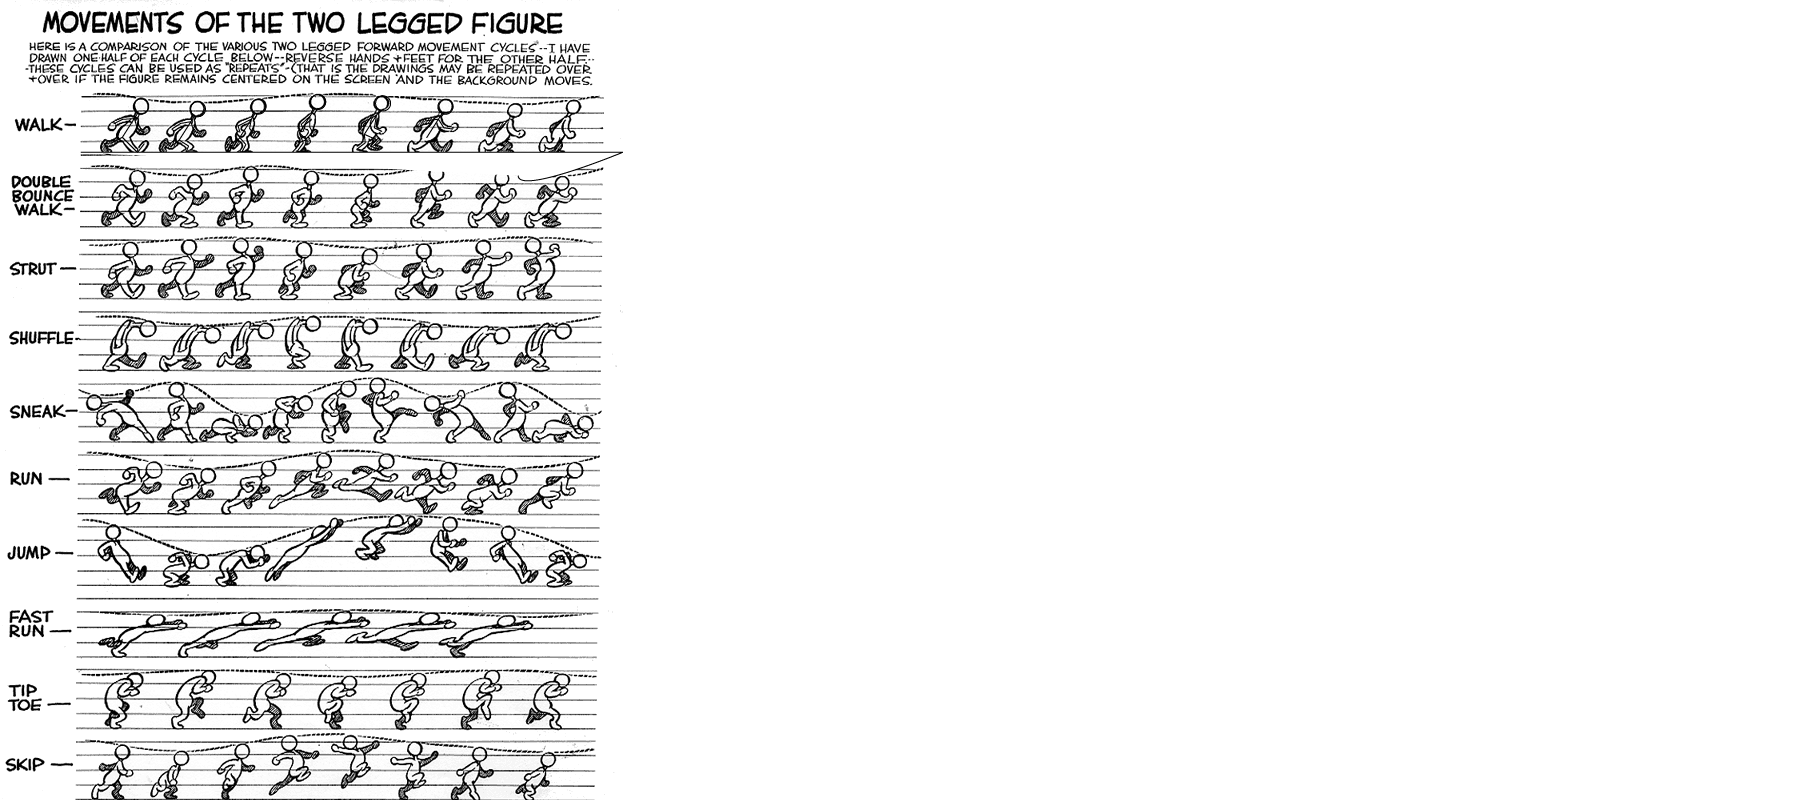 MOVEMENTS OF THE TWO LEGGED FIGURE
HERE IS A COMPARISON OF THE VARIOUS TWO LEGGED FORWARD MOVEMENT CYCLES--I HAVE
DRAWN ONE HALF OF EACH CYCLE BELOW--REVERSE HANDS + FEET FOR THE OTHER HALF--
-THESE CYCLES CAN BE USED AS "REPEATS"-(THAT IS THE DRAWINGS MAY BE REPEATED OVER
+OVER IF THE FIGURE REMAINS CENTERED ON THE SCREEN AND THE BACKGROUND MOVES.
WALK-
DOUBLE
BOUNCE
WALK-
STRUT-
SHUFFLE-
SNEAK-
RUN-
JUMP-
FAST
RUN-
TIP
TOE-
SKIP-